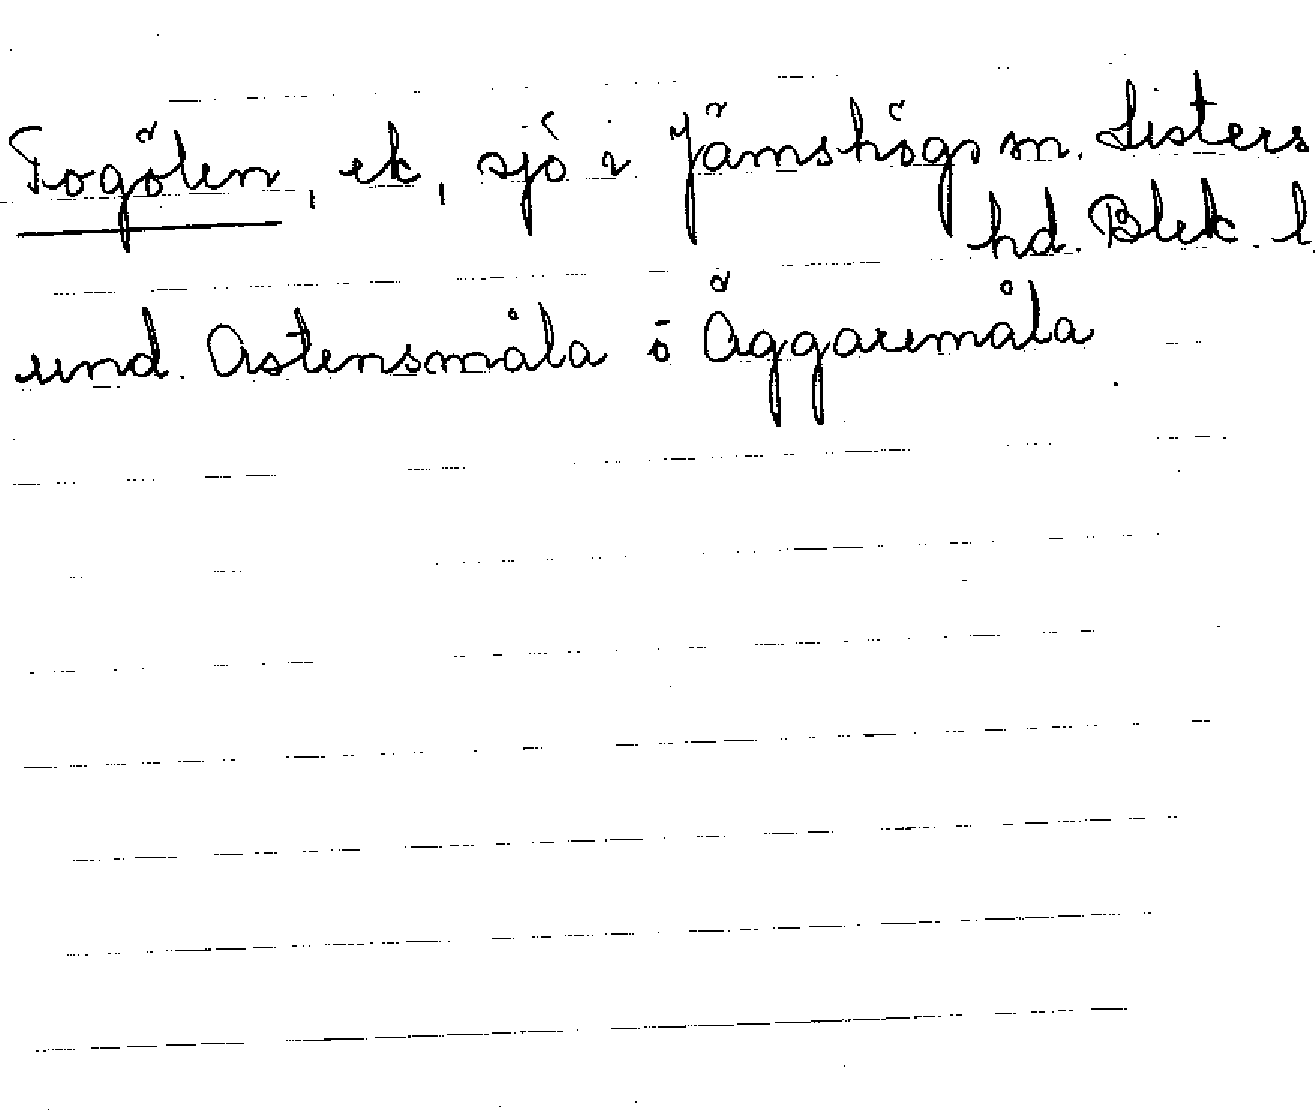 Togölen, ek, sjö i Jämshögs sn. Listers
hd. Blek. l.
und. Astensmåla o Äggaremåla